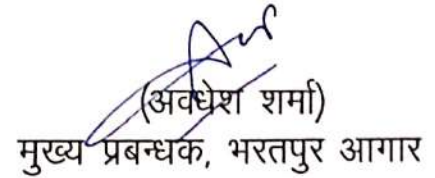 (अवधेश शर्मा)
मुख्य प्रबन्धक, भरतपुर आगार